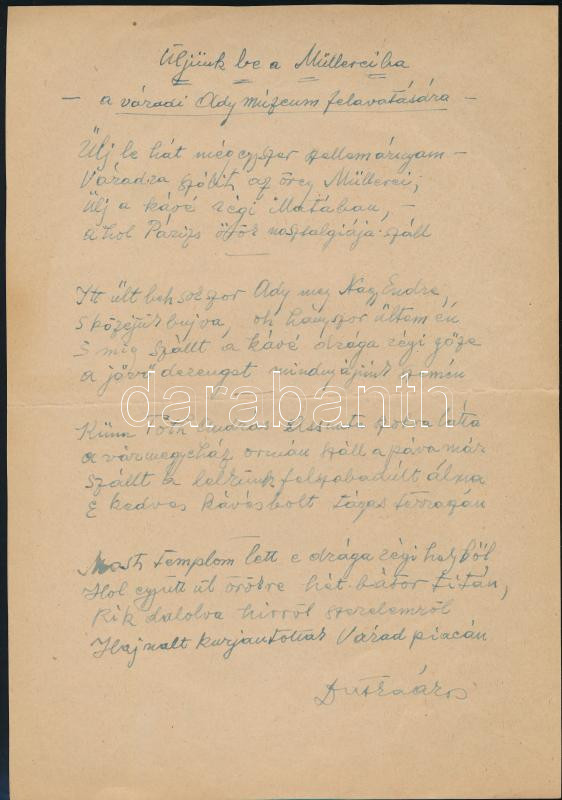 Üljünk be a Müllerciba
- a váradi Ady múzeum felavatására -
Ülj le hát mégegyszer szellemárnyam -
Váradra szólít az öreg Müllerci,
Ülj a kávé régi illatában, -
a hol Párizs örök nostalgiája száll
Itt ült beh sokszor Ady meg Nagy Endre,
S közéjük bujva, oh hányszor ültem én
S mig szállt a kávé drága régi gőze
a jövő derengett mindnyájunk szemén
darabanth
Künn Tóth
a vármegyeház ormán száll a páva már
Szállt a lelkünk felszabadúlt álma
E kedves kávésbolt tágas terraszán
Most templom lett e drága régi helyből
Hol együtt ül örökre hét bátor titán,
Kik dalolva hírről szerelemről
Hajnalt kurjantottak Várad piacán